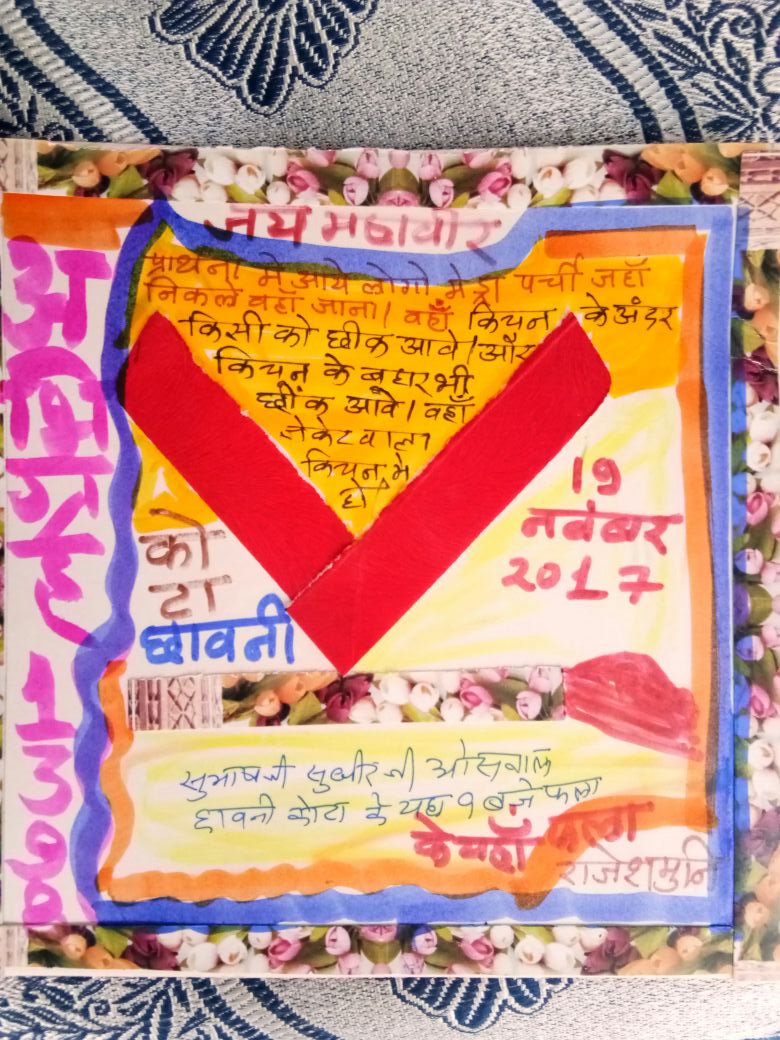 जय महावीर
प्राथना मे आये लोगो मे ड्रा पर्ची जहाँ
निकले वहाँ जाना। वहाँ किचन के अंदर
किसी को छीक आवे। और
किचन के बहार भी
छींक आवे। वहाँ
जेकेट वाला
किचन मे
हो
19
नवंबर
2017
को
टा
छावनी
सुभाष जी सुधीर जी ओसवाल
छावनी कोटा के यहा 9 बजे फला
के यहाँ फला
राजेशमुनि